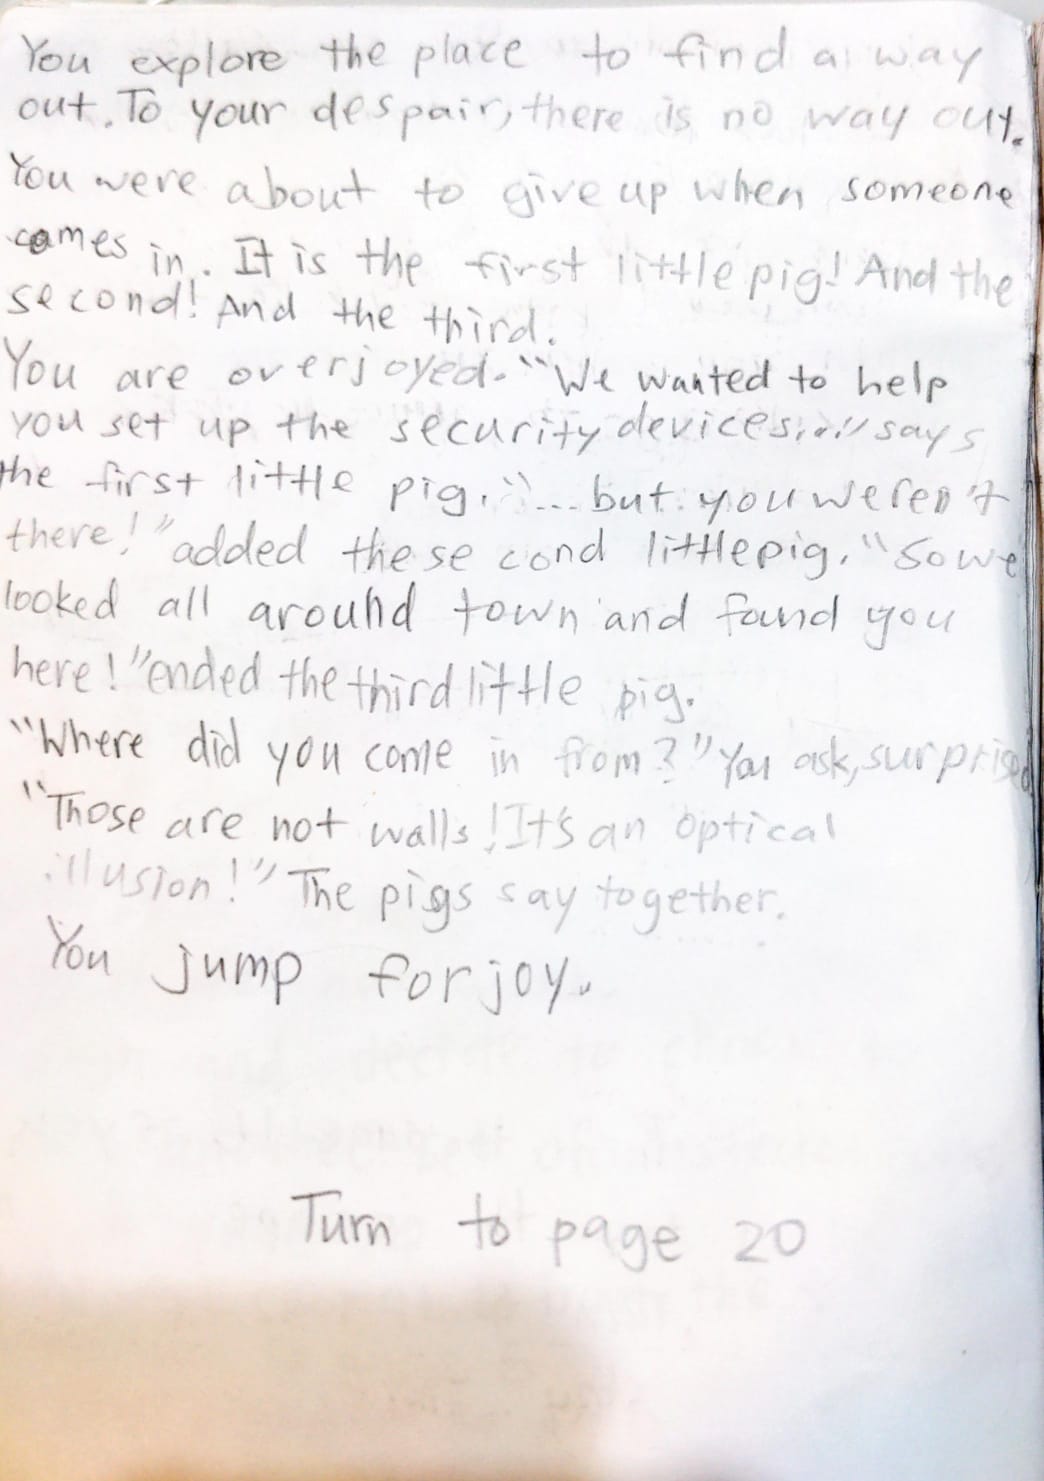 You explore the place to find a way
out. To your despair, there is no way out.
You were about to give up when someone
comes in. It is the first little pig! And the
second! And the third.
You are overjoyed. "We wanted to help
you set up the security devices..." says
the first little pig. "... but you weren't
there!" added the second little pig. "So we
looked all around town and found you
here!" ended the third little pig.
"Where did you come in from?" You ask, surprised.
"Those are not walls! It's an optical
illusion!" The pigs say together.
You jump for joy.
Turn to page 20